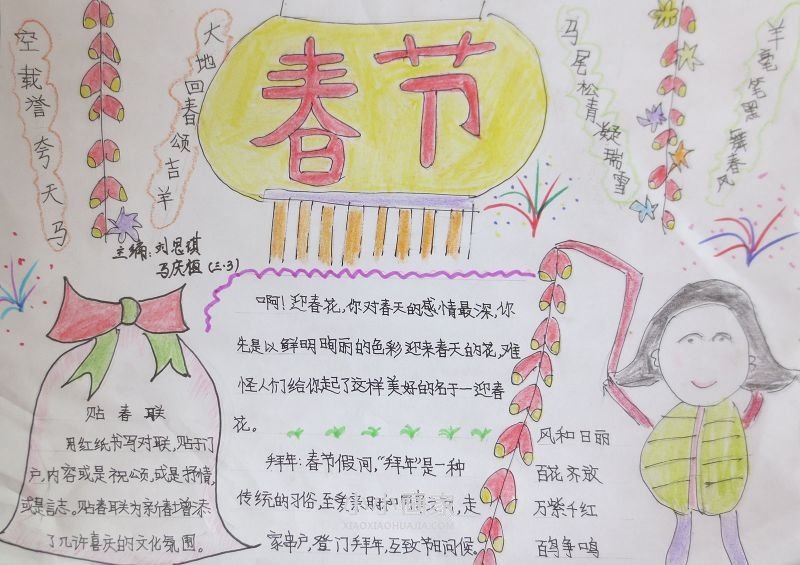 空载誉夸天马
大地回春颂吉羊
春节
马尾松青凝瑞雪
羊毫笔墨舞春风
主编:刘思琪
马庆恒(三·3)
啊!迎春花,你对春天的感情最深,你
先是以鲜明绚丽的色彩迎来春天的花,难
怪人们给你起了这样美好的名于一迎春
花。
拜年:春节假间,“拜年”是一种
传统的习俗,至
,走
家串户,登门拜年,互致节日问候。
贴春联
用红纸书写对联,贴于门
户,内容或是祝颂,或是抒情,
或是言志。贴春联为新春增添
了几许喜庆的文化氛围。
风和日丽
百花齐放
万紫千红
百鸟争鸣
小小画家
XIAOXIAOHUAJIA.COM